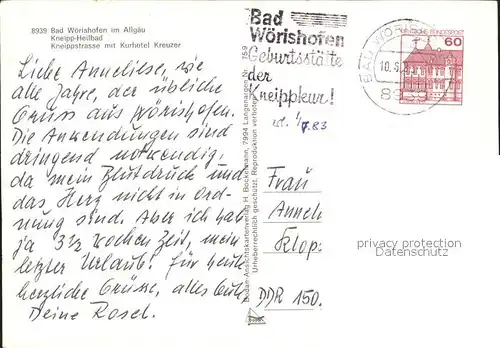 8939 Bad Wörishofen im Allgäu
Kneipp-Heilbad
Kneippstrasse mit Kurhotel Kreuzer
Liebe Anneliese, wie
alle Jahre, der übliche
Gruss aus Wörishofen.
Die Anwendungen sind
dringend notwendig,
da mein Blutdruck und
das Herz nicht in Ord-
nung sind. Aber ich hab
ja 3½ Wochen Zeit, mein
letzter Urlaub. Für heute
herzliche Grüsse, alles Gute
Deine Rosel.
Bodan-Ansichtskartenverlag H. Bockelmann, 7994 Langenargen Nr.
Urheberrechtlich geschützt. Reproduktion verboten
Bad
Wörishofen
Geburtsstätte
der
Kneippkur!
BAD WÖRI
10.
893
DEUTSCHE BUNDESPOST
60
Frau
Annel
Klop
DDR 150
privacy protection
Datenschutz